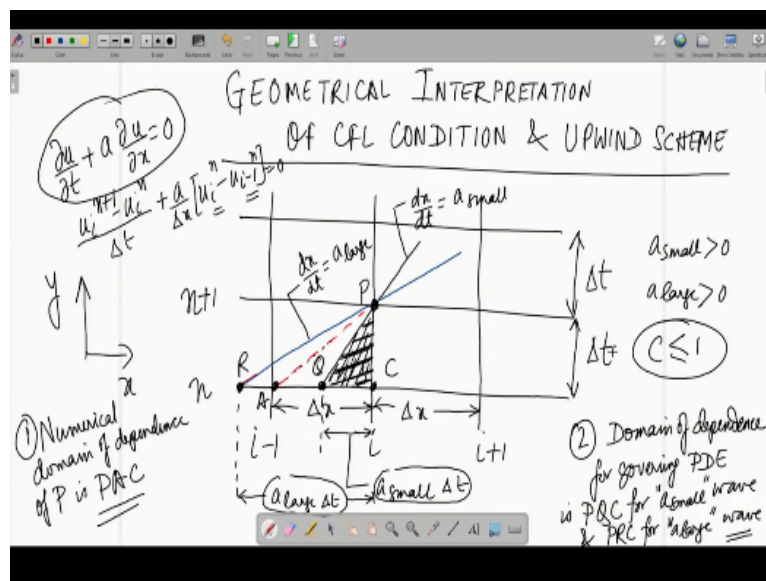 GEOMETRICAL INTERPRETATION
OF CFL CONDITION & UPWIND SCHEME
∂u/∂t + a ∂u/∂x = 0
(u_i^{n+1} - u_i^n)/Δt + a/Δx [u_i^n - u_{i-1}^n] = 0
dx/dt = a small
dx/dt = a large
a small > 0
a large > 0
C ≤ 1
Δt
Δt
y
x
n+1
n
P
R
A
Q
C
Δx
Δx
i-1
i
i+1
a large Δt
a small Δt
① Numerical
domain of dependence
of P is PAC
② Domain of dependence
for governing PDE
is PQC for "a small" wave
& PRC for "a large" wave